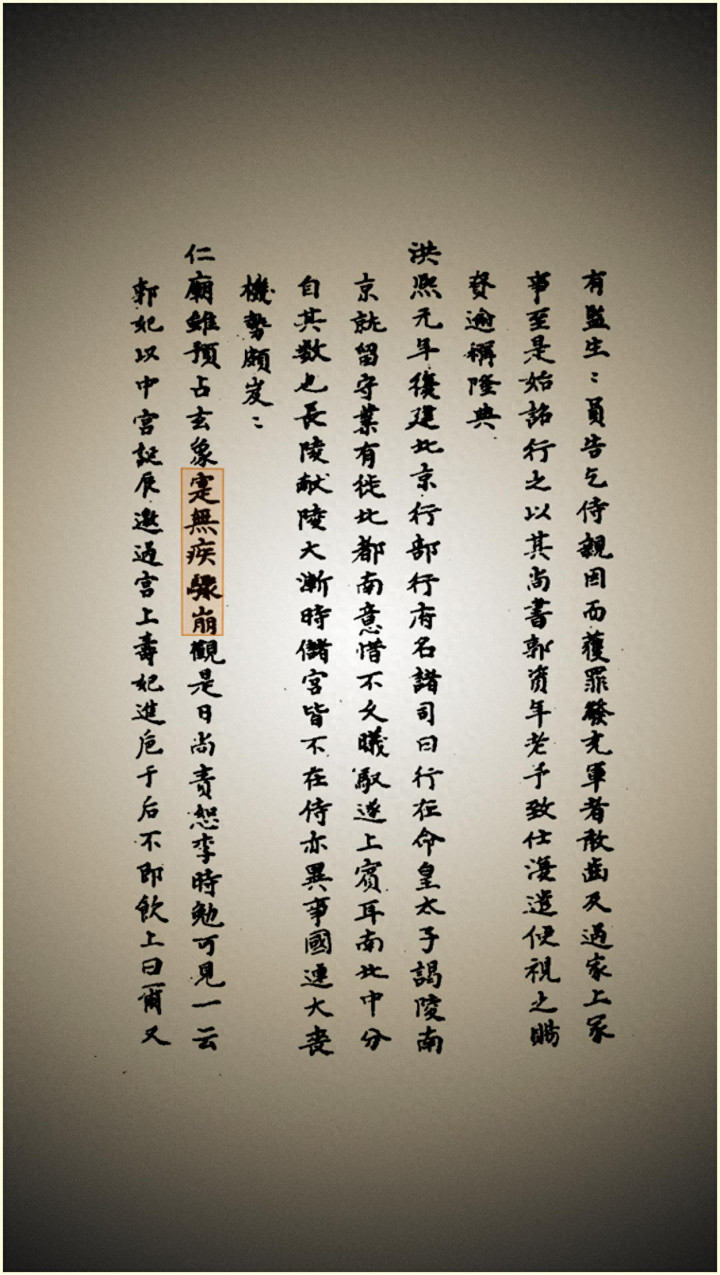 有監生〻員告乞侍親因而獲罪發充軍者敢齒及過家上冢
事至是始詔行之以其尚書郭資年老予致仕漫遣使視之賜
賚逾稱隆典
洪熙元年復建北京行部行府名諸司曰行在命皇太子謁陵南
京就留守業有徙北都南意惜不久曦馭遂上賓耳南北中分
自其数也長陵献陵大漸時儲宮皆不在侍亦異事國連大喪
機勢頗岌〻
仁廟雖預占玄象寔無疾驟崩觀是日尚責恕李時勉可見一云
郭妃以中宮誕辰邀過宮上壽妃進巵于后不即飲上曰爾又